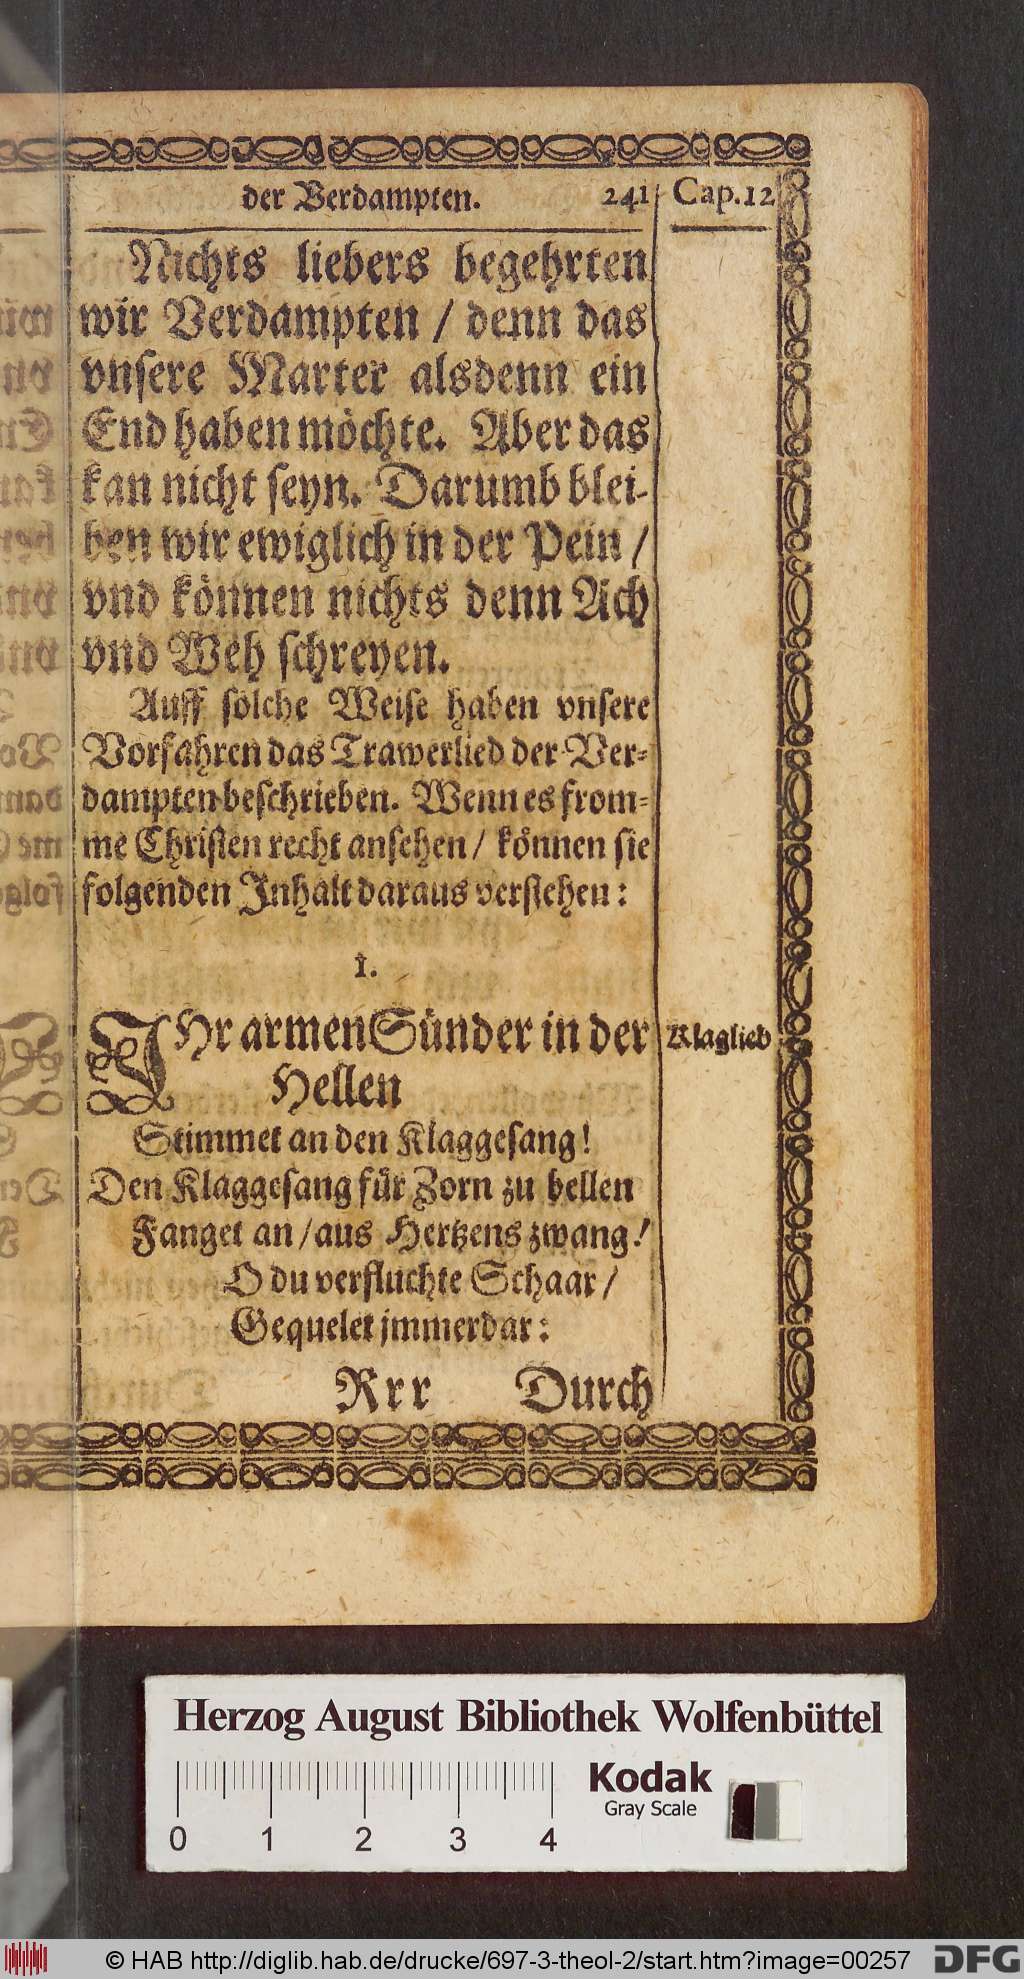 der Verdampten. 241 Cap. 12
Nichts liebers begehrten
wir Verdampten / denn das
vnsere Marter alsdenn ein
End haben möchte. Aber das
kan nicht seyn. Darumb blei-
ben wir ewiglich in der Pein /
vnd können nichts denn Ach
vnd Weh schreyen.
Auff solche Weise haben vnsere
Vorfahren das Trawerlied der Ver-
dampten beschrieben. Wenn es from-
me Christen recht ansehen / können sie
folgenden Inhalt daraus verstehen:
1.
IHr armen Sünder in der
Klaglied
Hellen
Stimmet an den Klaggesang!
Den Klaggesang für Zorn zu bellen
Fanget an / aus Hertzens zwang!
O du verfluchte Schaar /
Gequelet jmmerdar:
Rrr Durch
Herzog August Bibliothek Wolfenbüttel
Kodak
Gray Scale
0 1 2 3 4
© HAB http://diglib.hab.de/drucke/697-3-theol-2/start.htm?image=00257 DFG